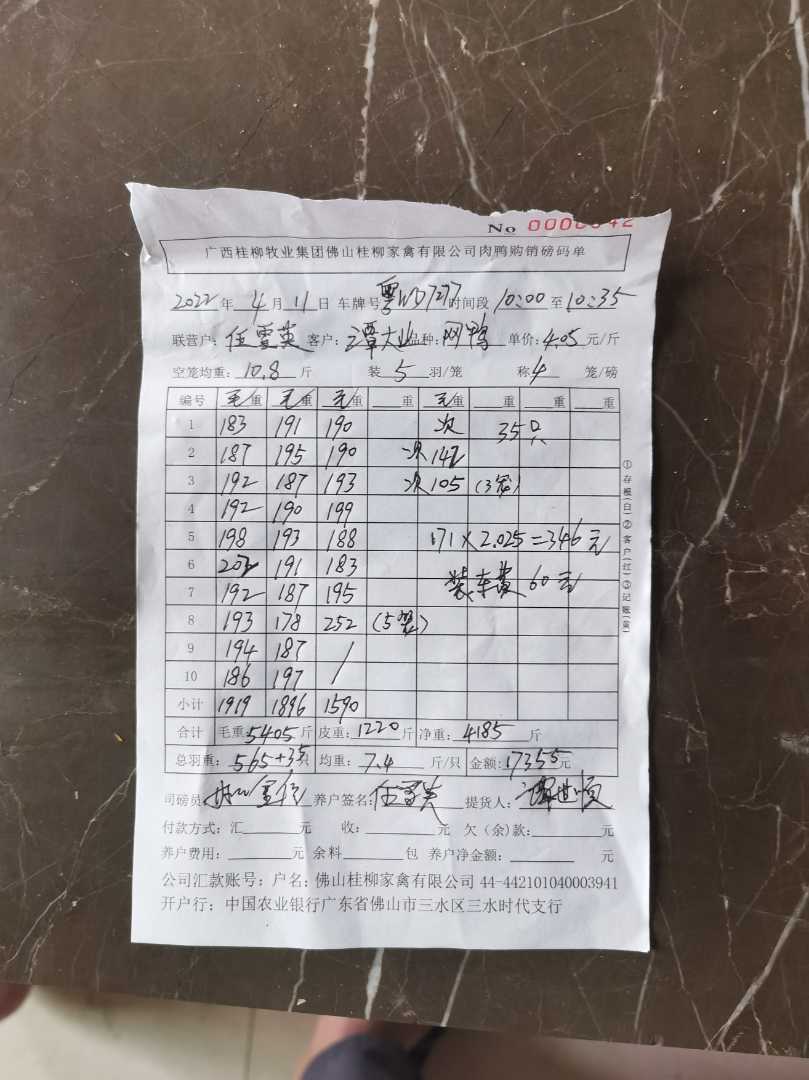 No
广西桂柳牧业集团佛山桂柳家禽有限公司肉鸭购销磅码单
2022年4月11日 车牌号 时间段 10:00至10:35
联营户:任雪英 客户:潭大业 品种:网鸭 单价:4.05元/斤
空笼均重:10.8斤 装5羽/笼 称4笼/磅
编号 毛重 毛重 毛重 重 毛重 重 重 重
1 183 191 190 次 35只
2 187 195 190 次 142
3 192 187 193 次 105 (3笼)
4 192 190 199
5 198 193 188 171×2.025=346元
6 202 191 183 装车费 60元
7 192 187 195
8 193 178 252 (5笼)
9 194 187 /
10 186 197
小计 1919 1896 1590
合计 毛重:5405斤 皮重:1220斤 净重:4185斤
总羽重:565+35只 均重:7.4斤/只 金额:17355元
司磅员: 养户签名:任雪英 提货人:谭世顺
付款方式:汇 元 收: 元 欠(余)款: 元
养户费用: 元 余料 包 养户净金额: 元
公司汇款账号:户名:佛山桂柳家禽有限公司 44-442101040003941
开户行:中国农业银行广东省佛山市三水区三水时代支行
①存根(白)②客户(红)③记账(黄)